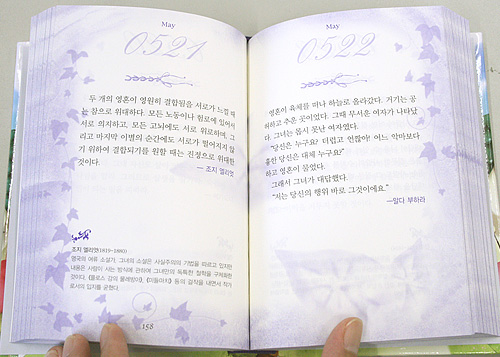 May
0521
두 개의 영혼이 영원히 결합됨을 서로가 느낄 때
는 참으로 위대하다. 모든 노동이나 원로에 있어서
서로 의지하고, 모든 고뇌에도 서로 위로하며, 그
리고 마지막 이별의 순간에도 서로가 떨어지지 않
기 위하여 결합되기를 원할 때는 진정으로 위대한
것이다.
— 조지 엘리엇
조지 엘리엇(1819~1880)
영국의 여류 소설가. 그녀의 소설은 사실주의의 기법을 따르고 있지만
내용은 사람이 사는 방식에 관하여 그녀만의 독특한 철학을 구체화한
것이다. 《플로스 강의 물레방아》, 《미들마치》 등의 걸작을 내면서 작가
로서의 입지를 굳혔다.
158
May
0522
영혼이 육체를 떠나 하늘로 올라갔다. 거기는 공
허하고 추운 곳이었다. 그때 무서운 여자가 나타났
다. 그녀는 몹시 못난 여자였다.
“당신은 누구요? 더럽고 언짢아! 어느 악마보다
흉한 당신은 대체 누구요?”
하고 영혼이 물었다.
그래서 그녀가 대답했다.
“저는 당신의 행위 바로 그것이에요.”
—알다 부하라